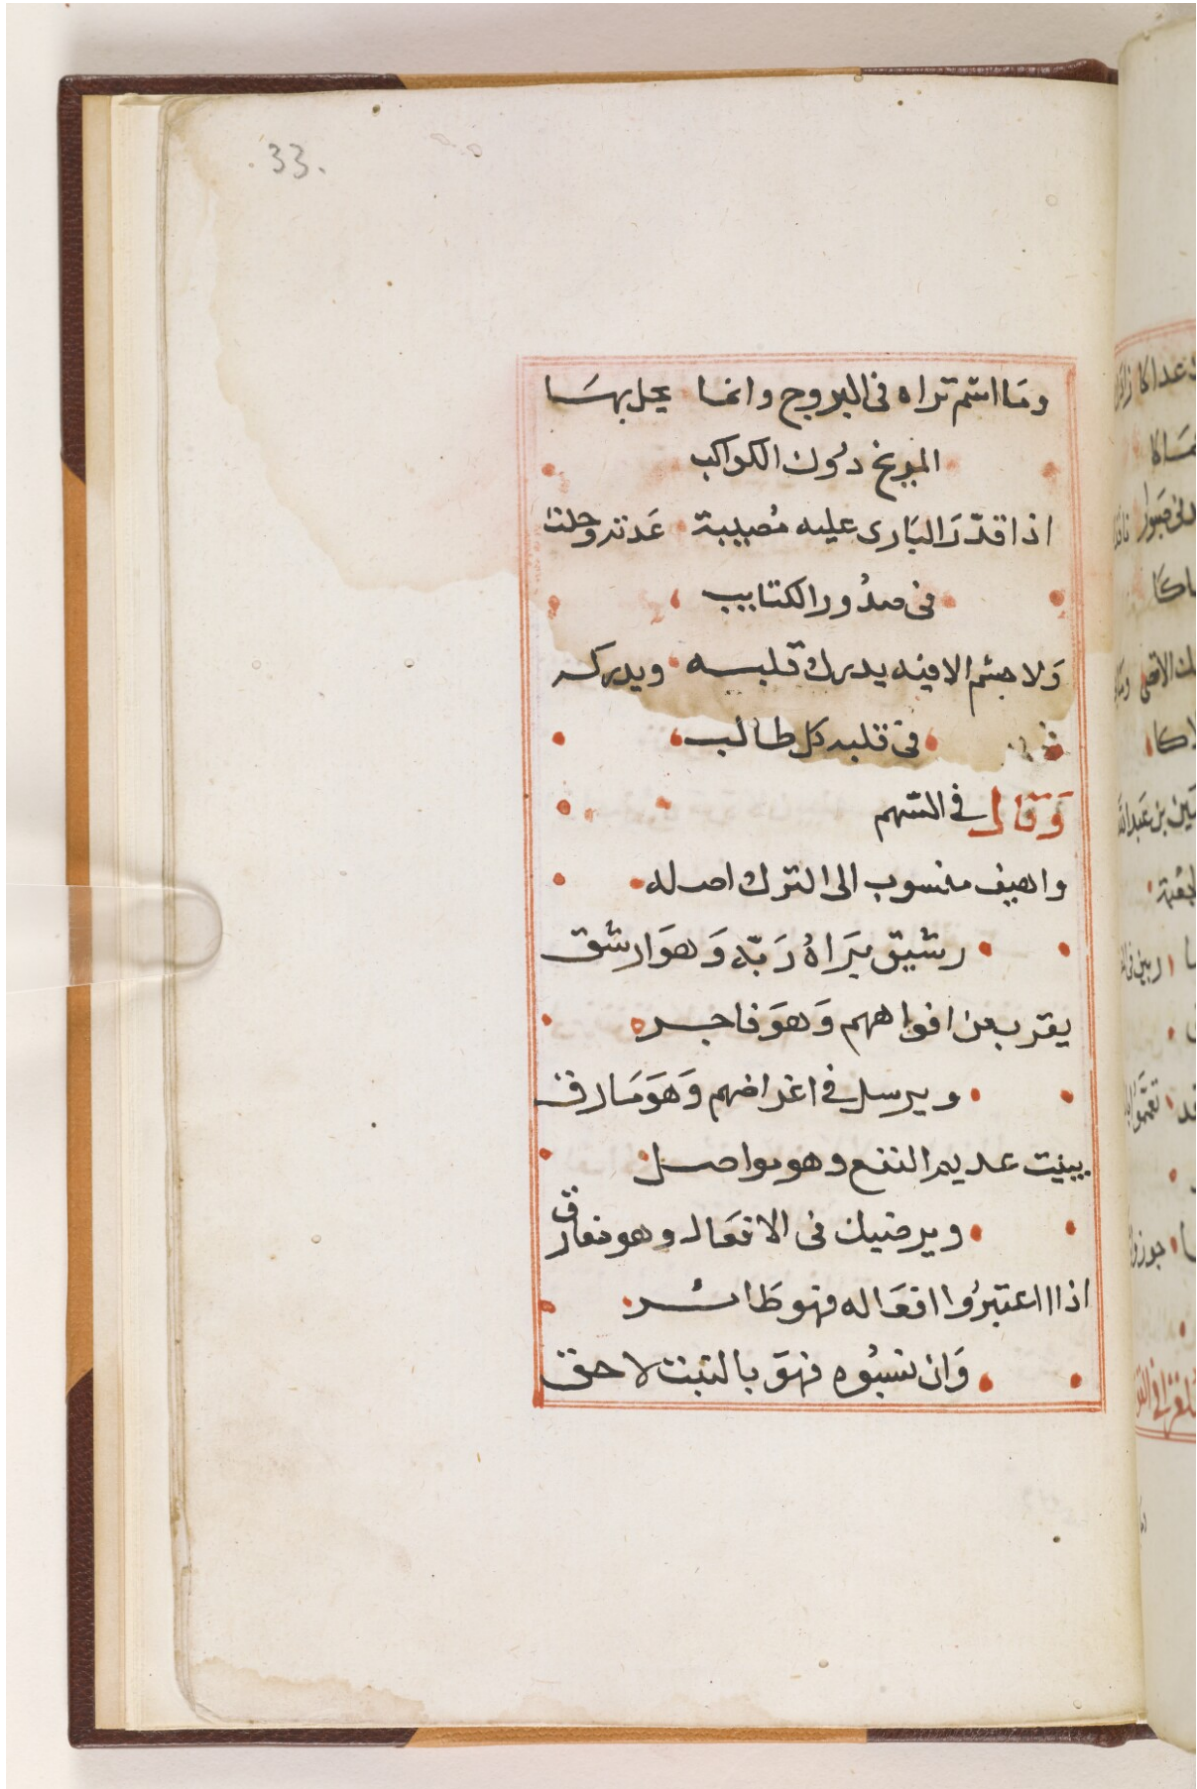 .33.
ومَا استم تراه فى البروج وانما يحل بهسَا
المريخ دُون الكواكب
اذا قدّرَ البَارى عليه مُصيبة عَدته وحلت
فى صدُور الكتايب
وَلا جسْم الا فيه يدرك قلبه ويدركه
فى قلبه كل طالب
وَقال فى السّهم
واهيف منسوب الى الترك اصله
رشيق يَرَاهُ رَبّه وَهوَ ارشق
يقرب من افواههم وَهوَ فاجر
ويرسل فى اغراضهم وَهَوَ مَارق
يبيت عديم النفع وهو مواصل
ويرضيك فى الافعَال وهو مفارق
اذا اعتبرُوا افعَاله فهو طَائر
وَان نسبُوه فهوَ بالنبت لاحق